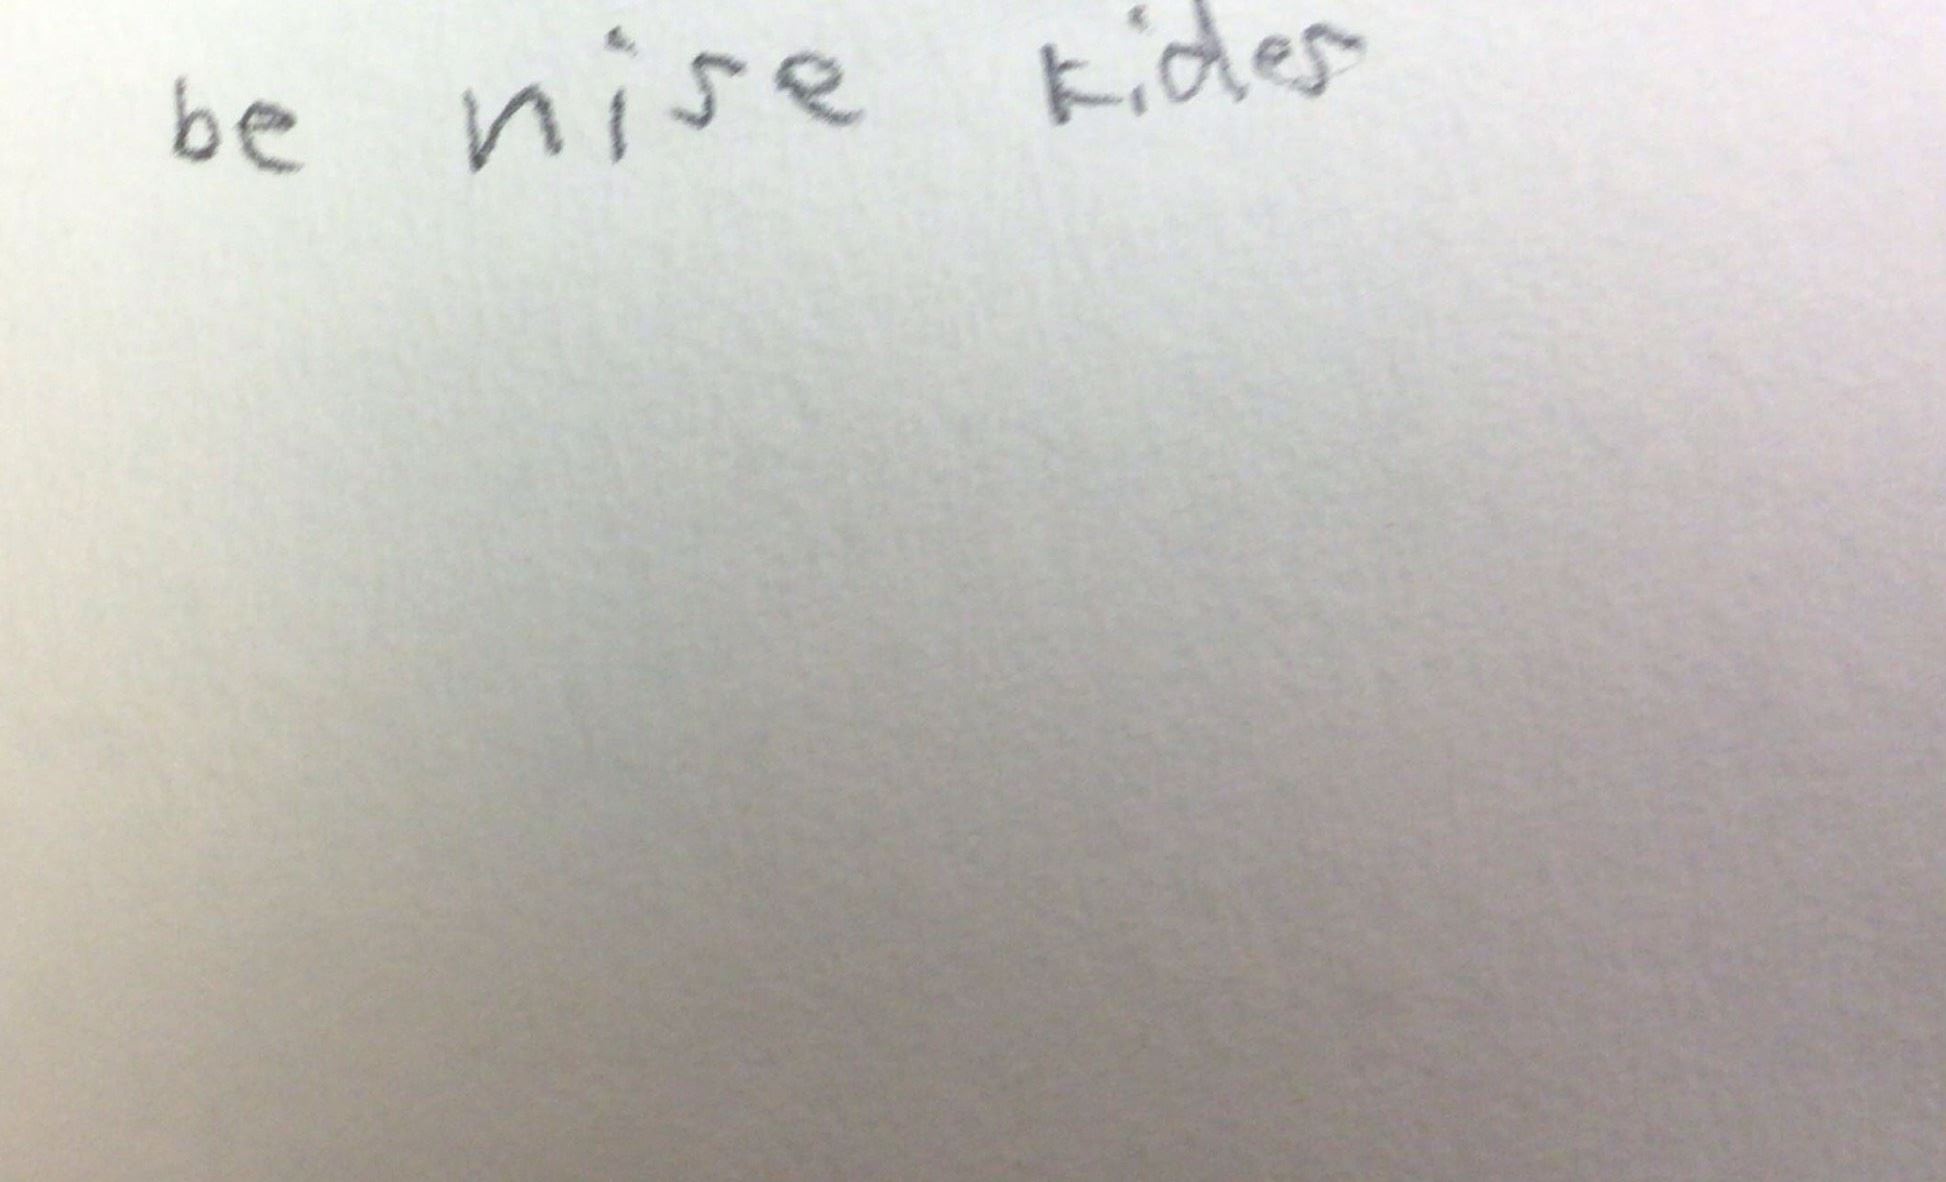 be nise kides